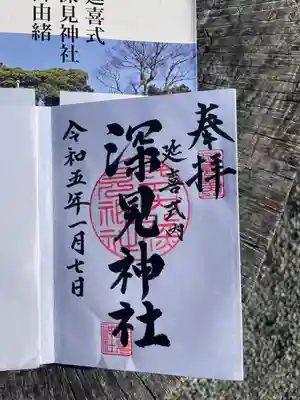 延喜式
深見神社
御由緒
奉拝
延喜式内
深見神社
令和五年一月七日